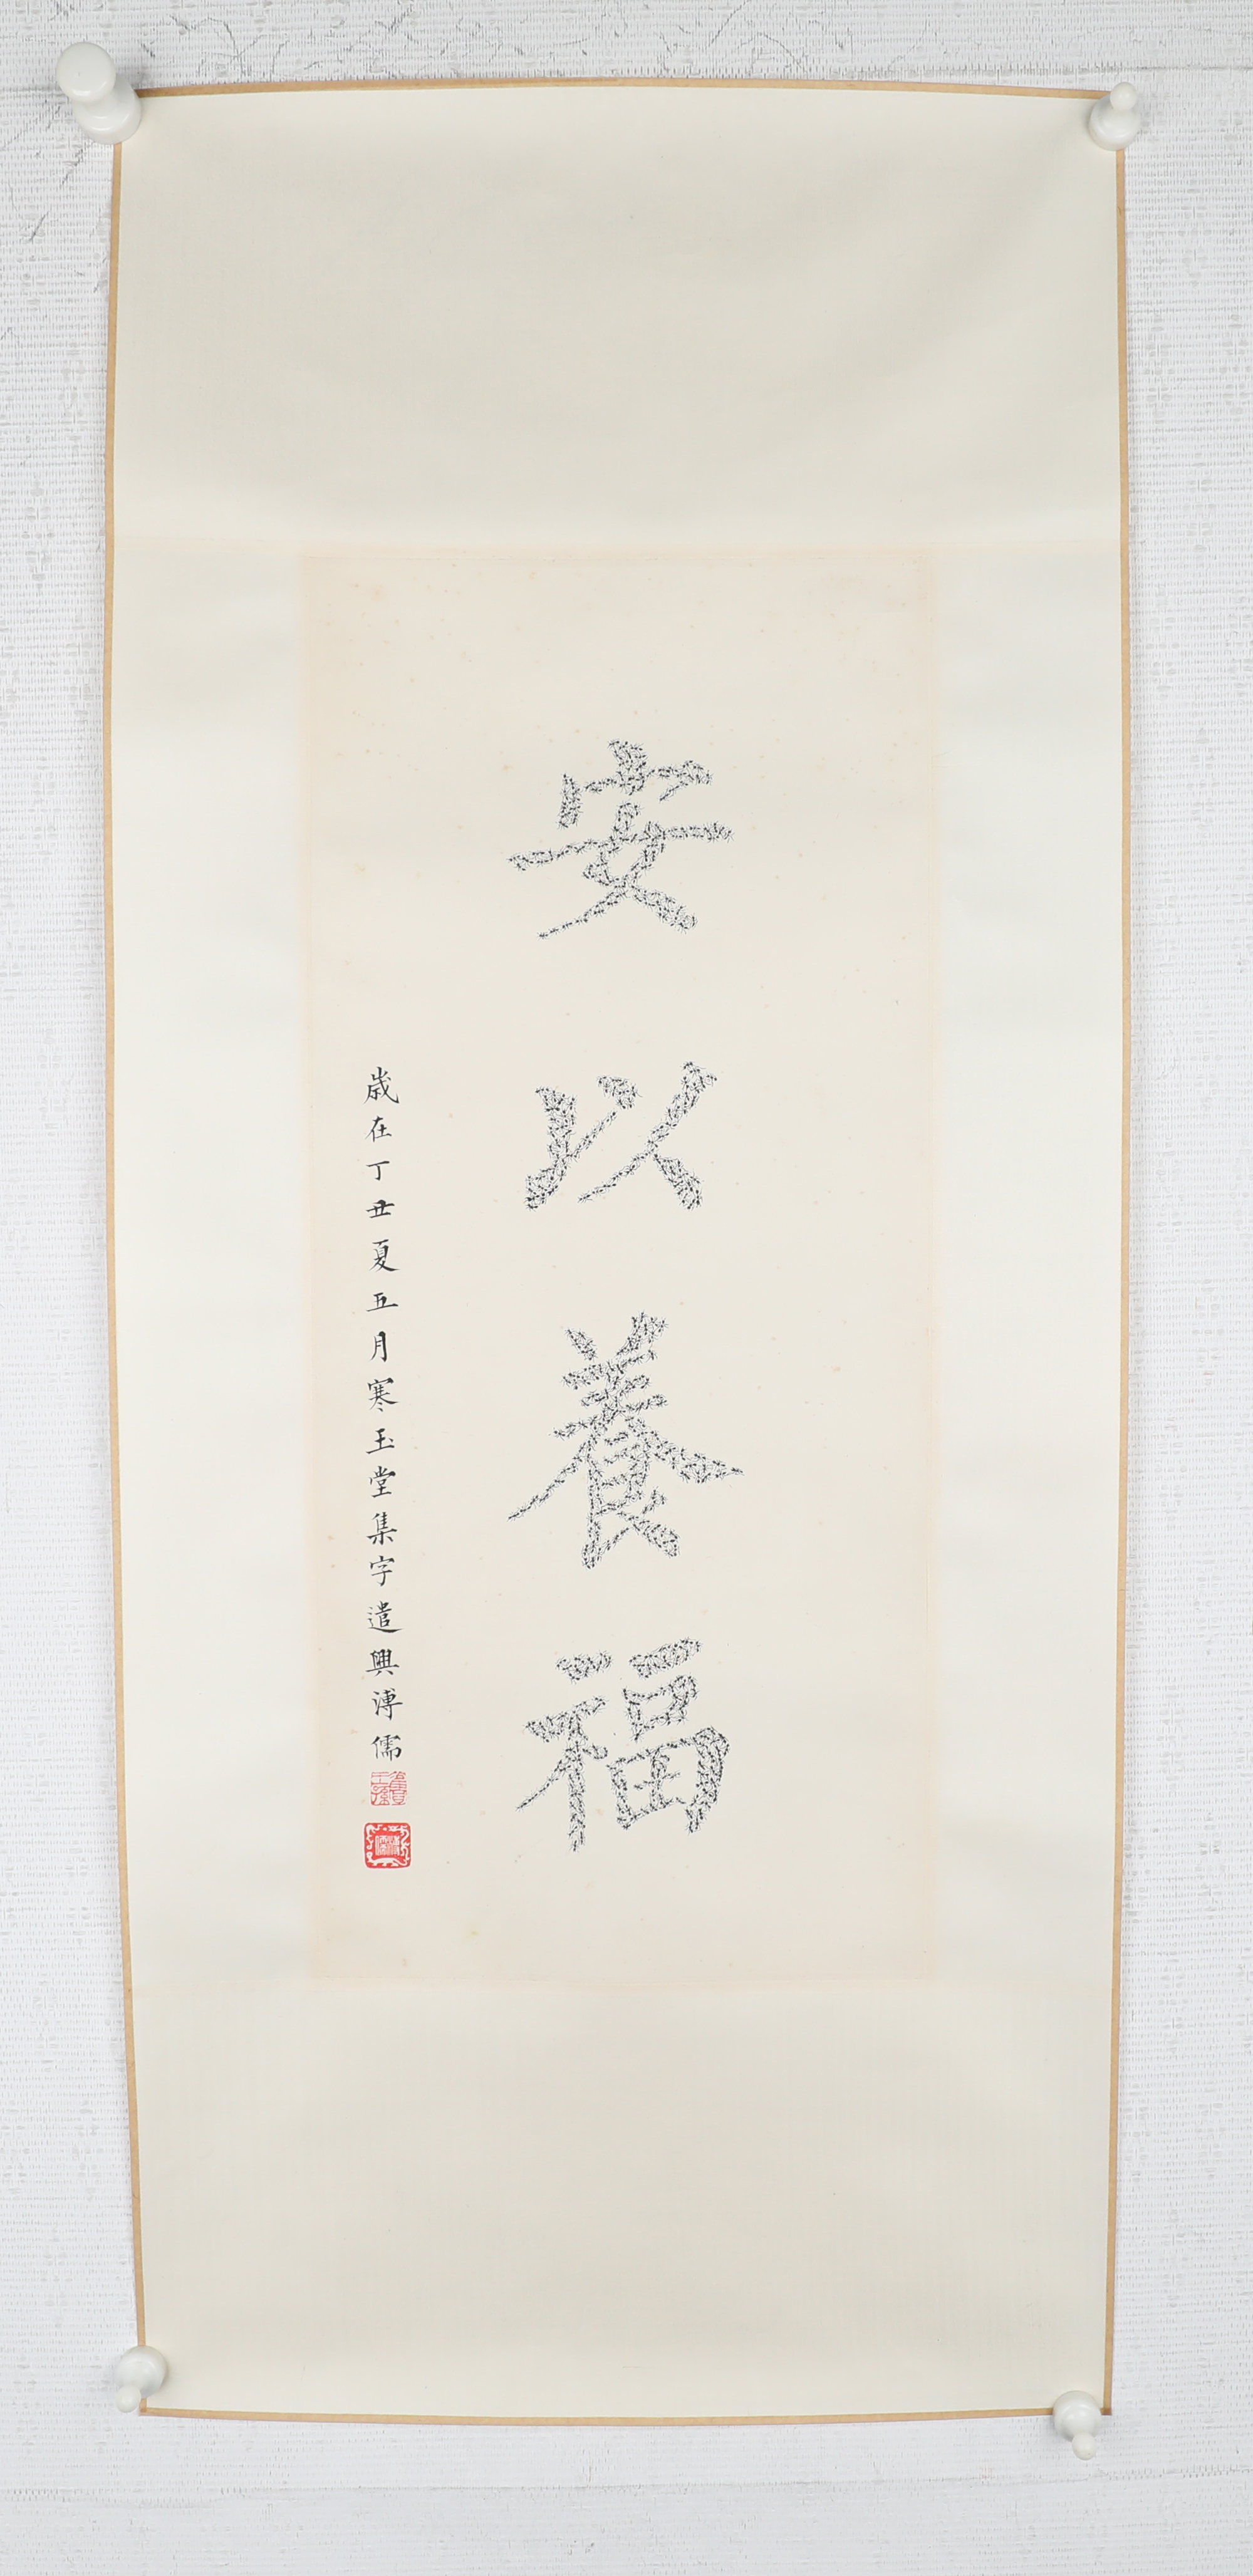 安以養福
歲在丁丑夏五月寒玉堂集字遣興溥儒
舊王孫
溥儒